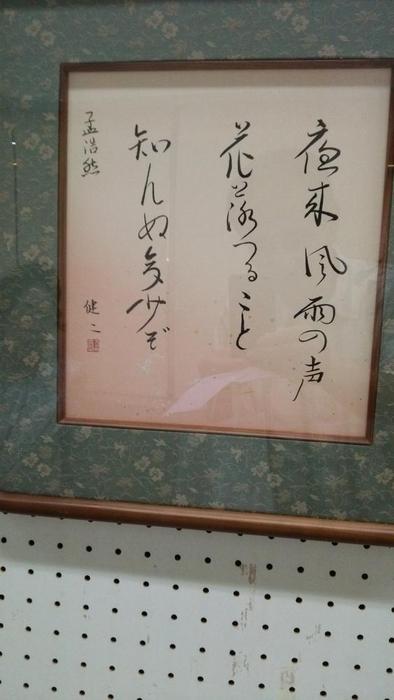 夜来風雨の声
花落つること
知んぬ多少ぞ
孟浩然
健二